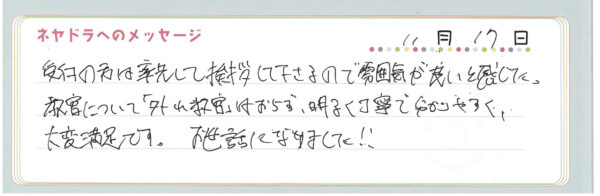 ネヤドラへのメッセージ
11月17日
受付の方は率先して挨拶して下さるので雰囲気が良いと感じた。
教官について「外れ教官」はおらず、明るく丁寧で分かりやすく、
大変満足です。 お世話になりました!!